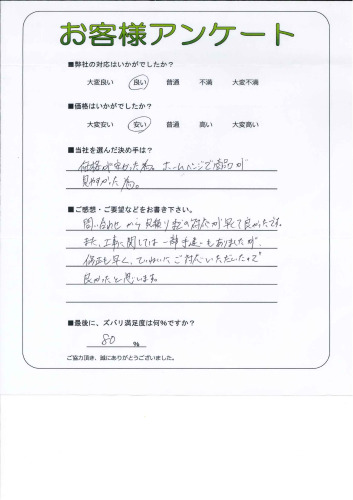 お客様アンケート
■弊社の対応はいかがでしたか？
大変良い 良い 普通 不満 大変不満
■価格はいかがでしたか？
大変安い 安い 普通 高い 大変高い
■当社を選んだ決め手は？
価格が安かった為。ホームページで商品が
見やすかった為。
■ご感想・ご要望などをお書き下さい。
問い合わせから見積り等の対応が早くて良かったです。
また、工事に関しては一部手違いもありましたが、
修正も早く、ていねいにご対応いただいたので
良かったと思います。
■最後に、ズバリ満足度は何％ですか？
80 ％
ご協力頂き、誠にありがとうございました。